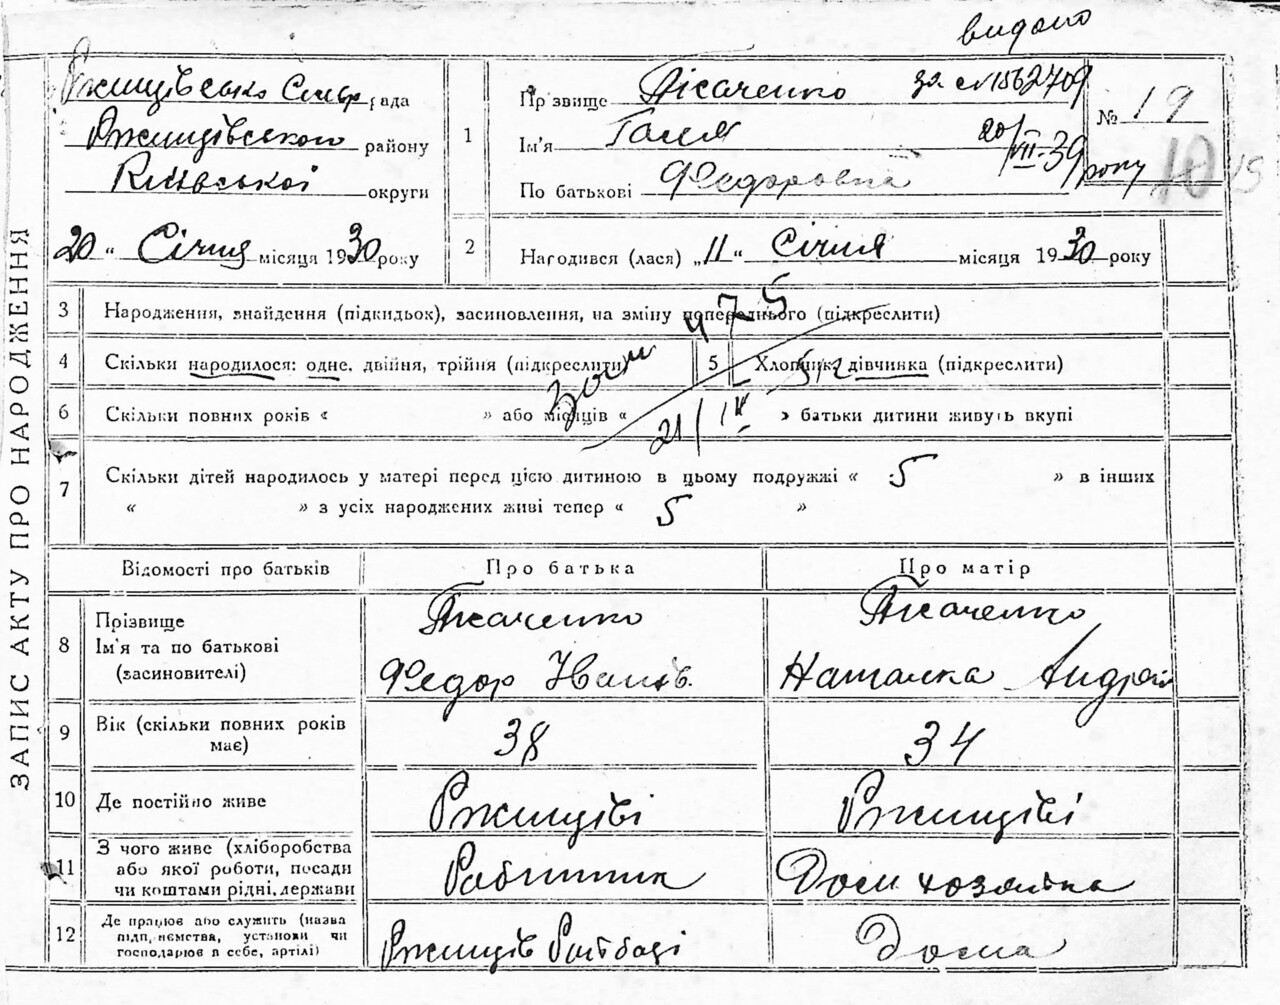 видано
Ржищівсько Сільр рада
Ржищівського району
Київської округи
20 " Січня місяця 1930 року
1
Прізвище Пісаченко за с №1562709
Ім'я Галя 20/VII-39 року
По батькові Федоровна
№ 19
10
2
Народився (лася) „11“ Січня місяця 1930 року
ЗАПИС АКТУ ПРО НАРОДЖЕННЯ
3 Народження, знайдення (підкидьок), засиновлення, на зміну попереднього (підкреслити)
4 Скільки народилося: одне, двійня, трійня (підкреслити)
5 Хлопчик, дівчинка (підкреслити)
6 Скільки повних років « » або місяців « » батьки дитини живуть вкупі
21/IX
7 Скільки дітей народилось у матері перед цією дитиною в цьому подружжі « 5 » в інших
« » з усіх народжених живі тепер « 5 »
Відомості про батьків
Про батька
Про матір
8 Прізвище
Ім'я та по батькові
(засиновителі)
Пісаченко
Федор Іванів.
Пісаченко
Наталка Андрії
9 Вік (скільки повних років
має)
38
34
10 Де постійно живе
Ржищіві
Ржищіві
11 З чого живе (хліборобства
або якої роботи, посади
чи коштами рідні, держави
Робітник
Дом. хозяйка
12 Де працює або служить (назва
підприємства, установи чи
господарює в себе, артілі)
Ржищів
Дома